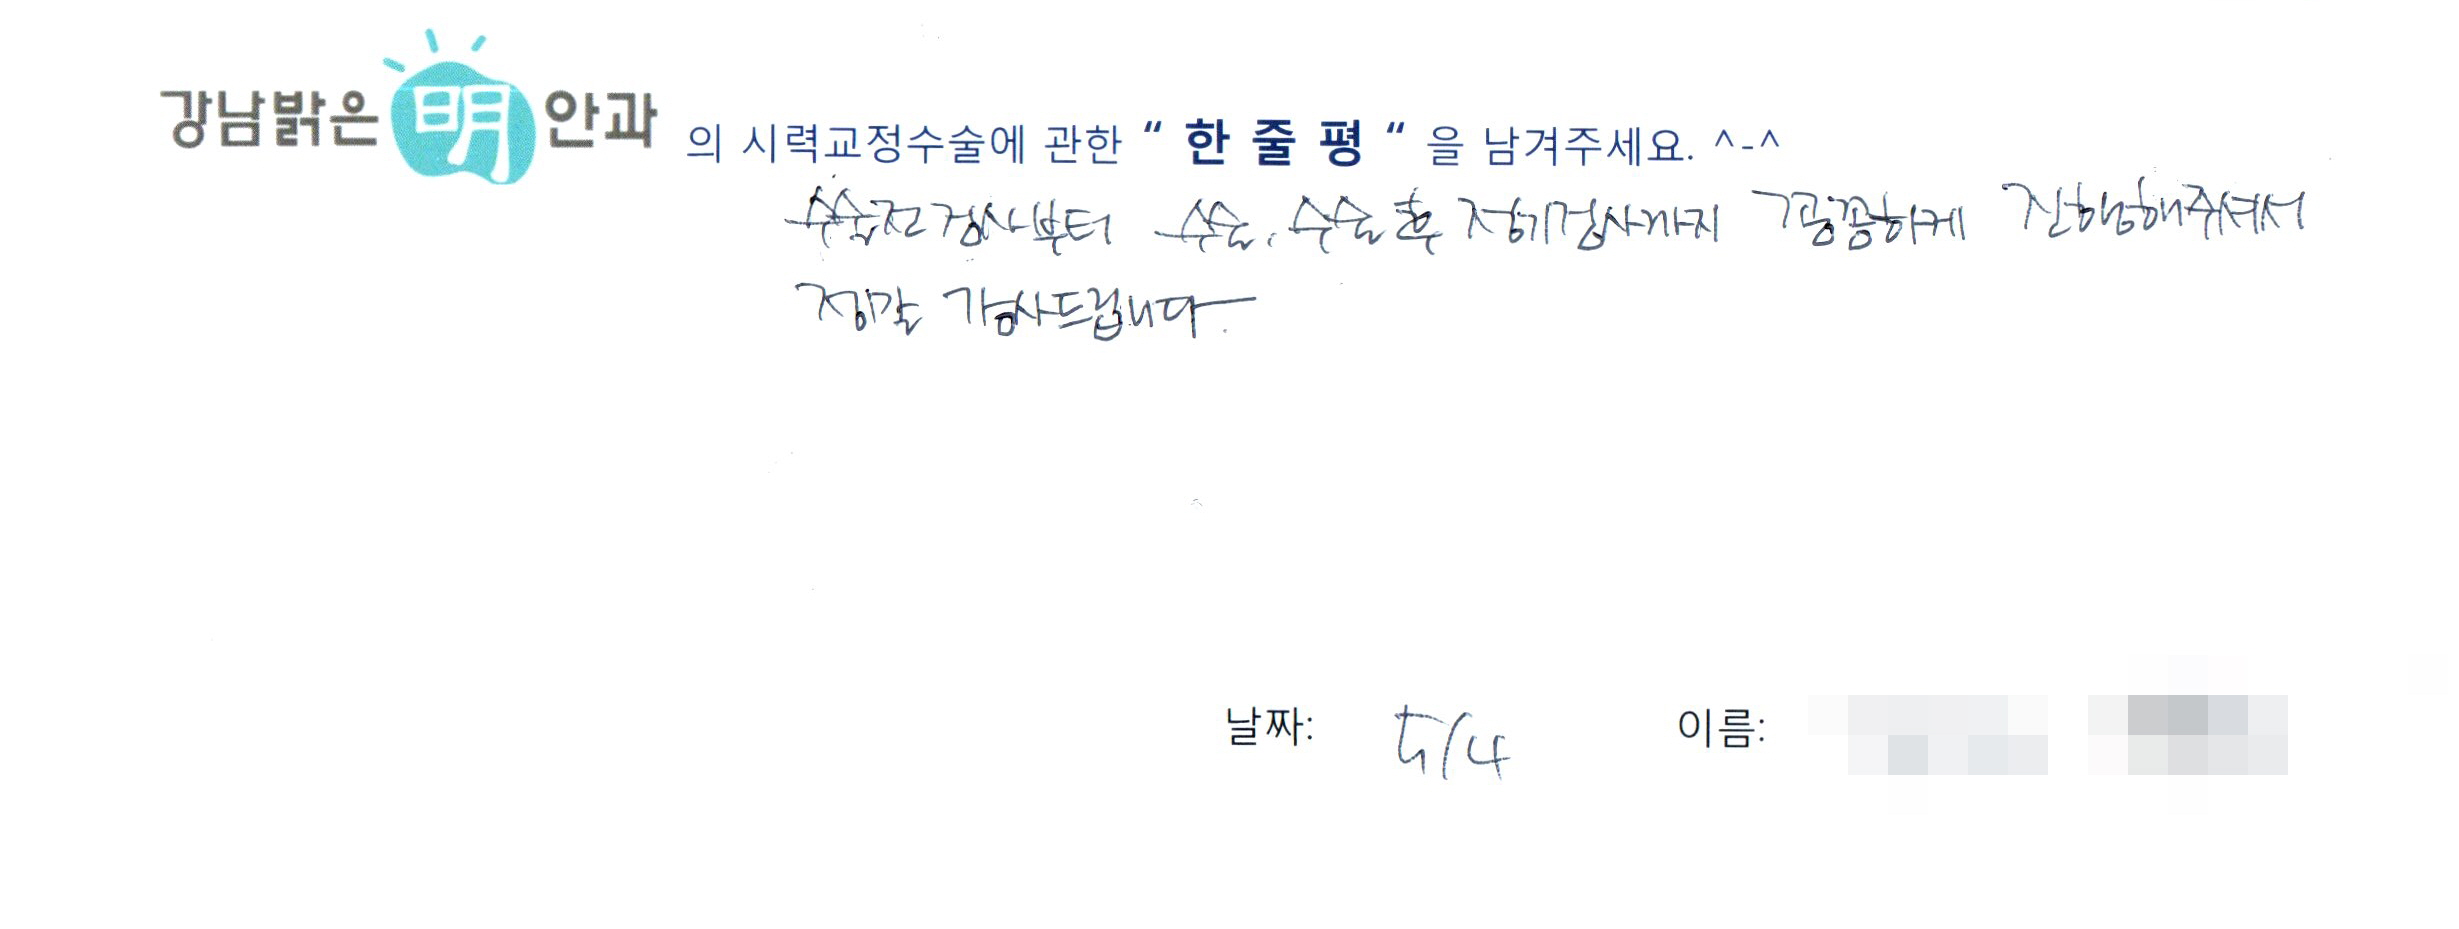 강남밝은 明 안과 의 시력교정수술에 관한 “ 한 줄 평 “ 을 남겨주세요. ^-^
수술전검사부터 수술, 수술 후 정기검사까지 꼼꼼하게 진행해주셔서
정말 감사드립니다.
날짜: 5/4 이름: